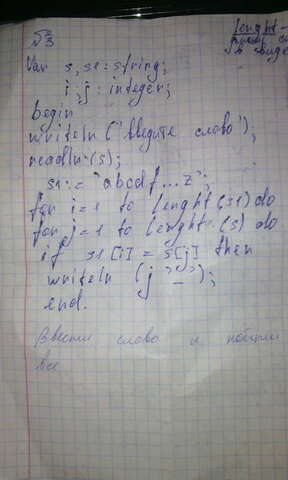 №3
lenght -
Var s, s1: string;
i, j: integer;
begin
writeln ('введите слово');
readln (s);
s1:= 'abcdf...z';
for i=1 to lenght (s1) do
for j=1 to lenght (s) do
if s1[i] = s[j] then
writeln (j '_');
end.
Ввести слово и
все